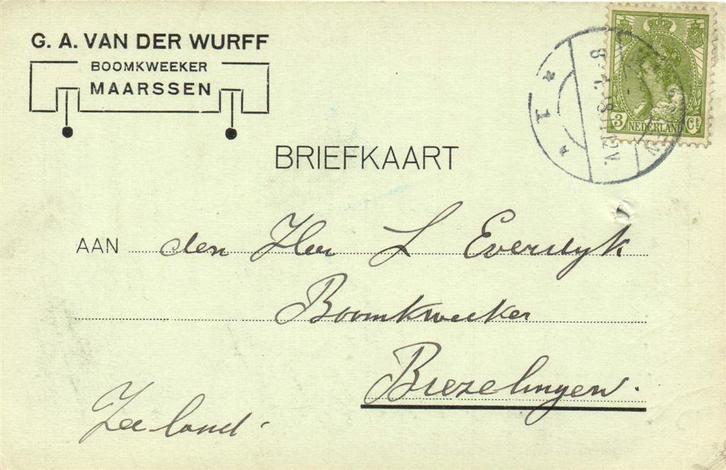 G. A. VAN DER WURFF
BOOMKWEEKER
MAARSSEN
3 NEDERLAND Ct
BRIEFKAART
AAN den Heer L Everdyk
Boomkweeker
Biezelingen.
Zeeland.